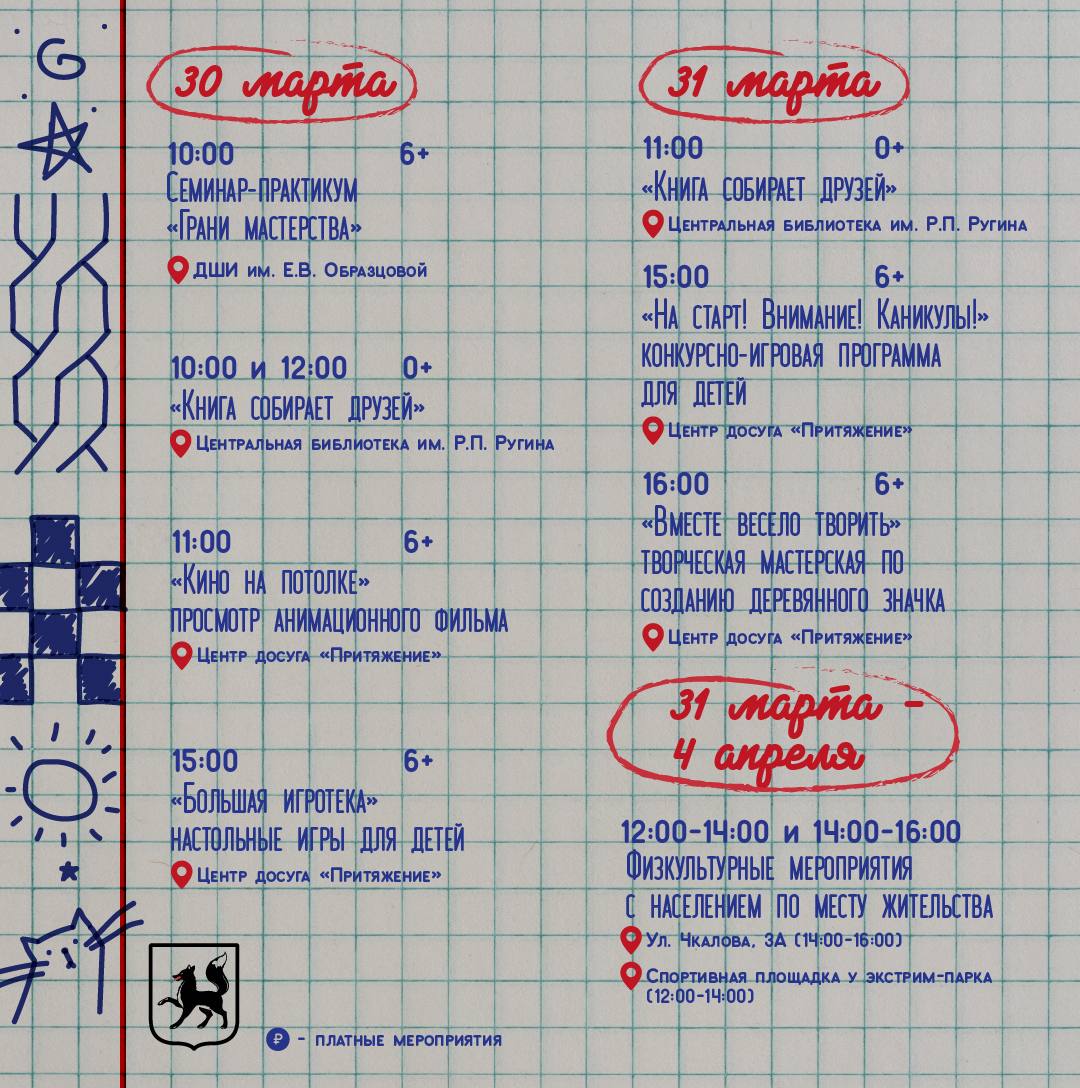 30 марта
10:00 6+
Семинар-практикум
«Грани мастерства»
ДШИ им. Е.В. Образцовой
10:00 и 12:00 0+
«Книга собирает друзей»
Центральная библиотека им. Р.П. Ругина
11:00 6+
«Кино на потолке»
просмотр анимационного фильма
Центр досуга «Притяжение»
15:00 6+
«Большая игротека»
настольные игры для детей
Центр досуга «Притяжение»
₽ - платные мероприятия
31 марта
11:00 0+
«Книга собирает друзей»
Центральная библиотека им. Р.П. Ругина
15:00 6+
«На старт! Внимание! Каникулы!»
конкурсно-игровая программа
для детей
Центр досуга «Притяжение»
16:00 6+
«Вместе весело творить»
творческая мастерская по
созданию деревянного значка
Центр досуга «Притяжение»
31 марта -
4 апреля
12:00-14:00 и 14:00-16:00
Физкультурные мероприятия
с населением по месту жительства
Ул. Чкалова, 3А (14:00-16:00)
Спортивная площадка у экстрим-парка
(12:00-14:00)